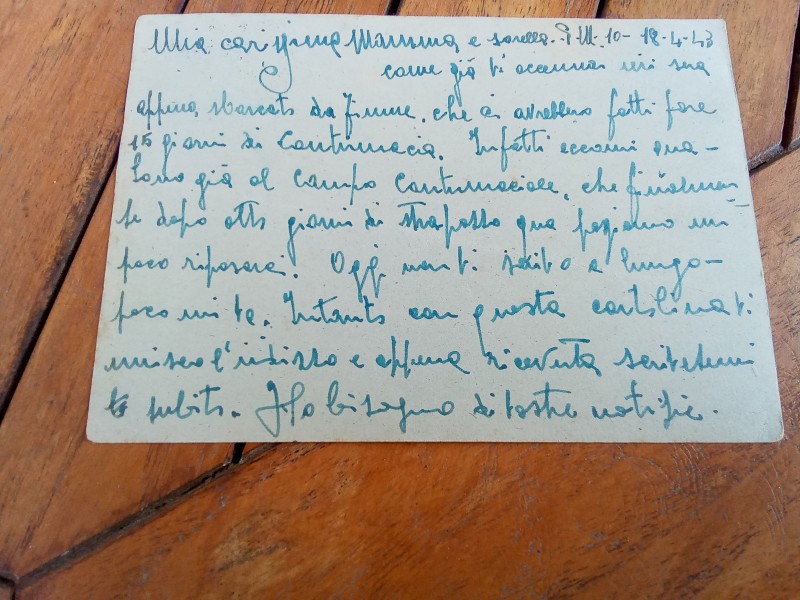 Mia carissima Mamma e sorella. P.M. 10- 18-4-43
come già ti accennai ieri
appena sbarcato da Fiume, che ci avrebbero fatti fare
15 giorni di Contumacia. Infatti eccomi
già al Campo Contumaciale, che finalmen
te dopo otto giorni di strapazzo qua possiamo un
poco riposarci. Oggi non ti scrivo a lungo-
Intanto con questa cartolina ti
l'indirizzo e appena ricevuta scrivetemi
subito. Ho bisogno di vostre notizie.